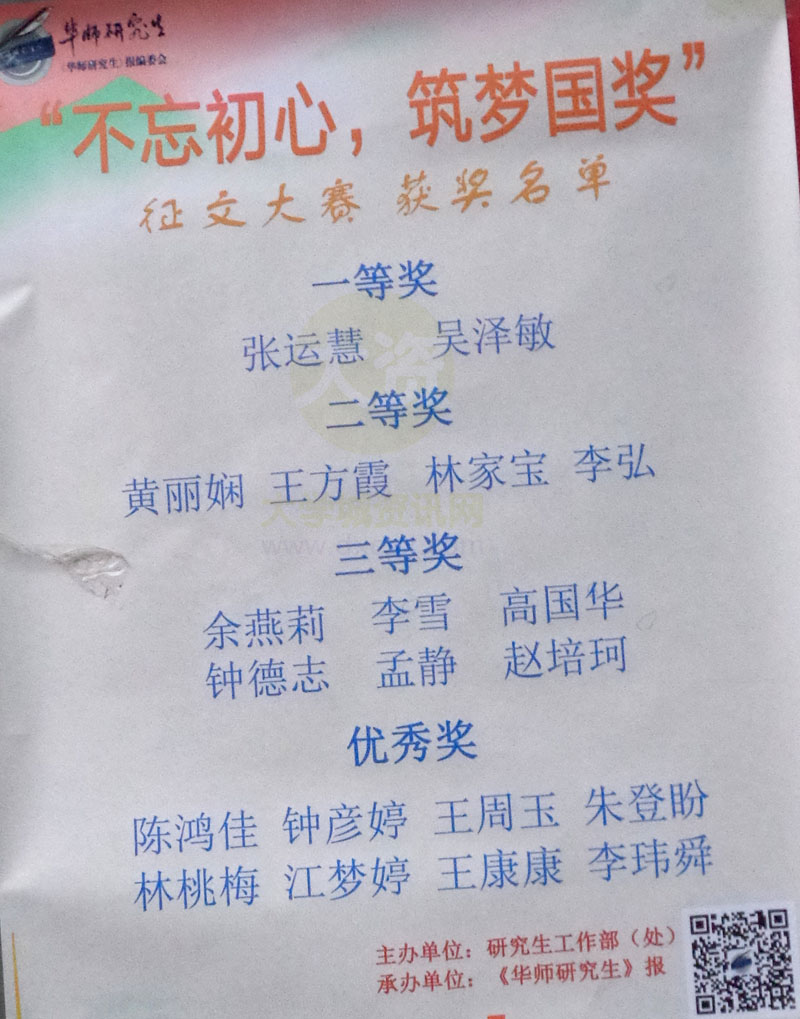 华师研究生
《华师研究生》报编委会
“不忘初心，筑梦国奖”
征文大赛 获奖名单
一等奖
张运慧 吴泽敏
二等奖
黄丽娴 王方霞 林家宝 李弘
大学城资讯网
三等奖
余燕莉 李雪 高国华
钟德志 孟静 赵培珂
优秀奖
陈鸿佳 钟彦婷 王周玉 朱登盼
林桃梅 江梦婷 王康康 李玮舜
主办单位：研究生工作部（处）
承办单位：《华师研究生》报